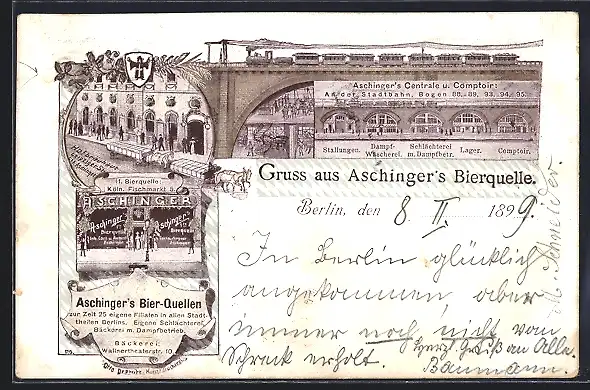 Aschinger's Centrale u. Comptoir:
An der Stadtbahn, Bogen 88.-89, 93.-94.-95.
Stallungen. Dampf-Wäscherei. Schlächterei m. Dampfbetr. Lager. Comptoir.
Gruss aus Aschinger's Bierquelle.
Berlin, den 8. II. 1899.
11. Bierquelle:
Köln. Fischmarkt 5.
ASCHINGER
Aschinger's
Bierquelle
Aschinger's
Bierquelle
Aschinger's Bier-Quellen
zur Zeit 25 eigene Filialen in allen Stadt-
theilen Berlins. Eigene Schlächterei,
Bäckerei m. Dampfbetrieb.
Bäckerei:
Wallnertheaterstr. 10.
In Berlin glücklich
angekommen aber
immer noch nicht vom
Schreck erholt.
Herz. Gruß an Alle.
Baumann.
M. Schneider.